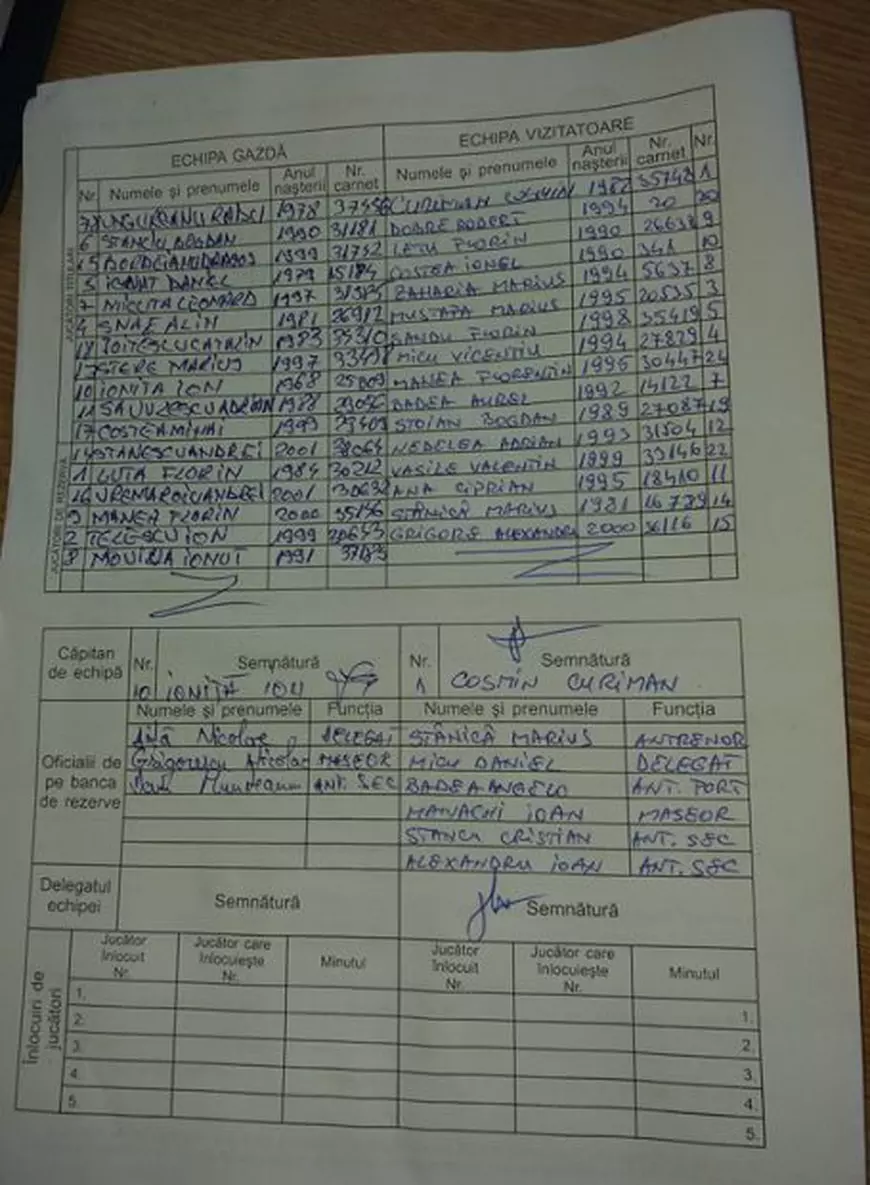 ECHIPA GAZDĂ ECHIPA VIZITATOARE
Nr. Numele și prenumele Anul nașterii Nr. carnet Numele și prenumele Anul nașterii Nr. carnet Nr.
JUCĂTORI TITULARI
1978 CURIMAN 1982 35742 1
6 STANCIU BOGDAN 1990 31181 DOBRE ROBERT 1994 20 20
15 1999 31752 FLORIN 1990 9
5 IGNAT DANEL 1979 15184 COSTEA IONEL 1990 341 10
7 MICLITA LEONARD 1997 ZAHARIA MARIUS 1994 5637 8
4 SNAE ALIN 1981 26912 MUSTAFA MARIUS 1995 20535 3
18 1983 35310 SANDU FLORIN 1998 35419 5
STERE MARIUS 1997 MICU VICENTIU 1994 27829 4
10 IONITA ION 1968 MANEA FLORENTIN 1996 30447 24
11 1988 BADEA AUREL 1992 14122 7
17 COSTEA MIHAI 1999 STOIAN BOGDAN 1989 27087 19
JUCĂTORI DE REZERVĂ
14 STANESCU ANDREI 2001 38064 NEDELEA ADRIAN 1993 31504 12
1 LUTA FLORIN 1984 30212 VASILE VALENTIN 1999 39146 22
16 2001 ANA CIPRIAN 1995 18410 11
9 MANEA FLORIN 2000 35156 STĂNICĂ MARIUS 1981 16789 14
2 TELESCU ION 1999 GRIGORE ALEXANDRU 2000 36116 15
8 MOVILIA IONUT 1991
Căpitan de echipă Nr. Semnătură Nr. Semnătură
10 IONIȚĂ ION 1 COSMIN CURIMAN
Numele și prenumele Funcția Numele și prenumele Funcția
Oficialii de pe banca de rezerve
Nicolae DELEGAT STĂNICĂ MARIUS ANTRENOR
Grigorescu Nicolae MASEOR MICU DANIEL DELEGAT
Munteanu ANT. SEC BADEA ANGELO ANT. PORT
MANACHI IOAN MASEOR
STANCU CRISTIAN ANT. SEC
ALEXANDRU IOAN ANT. SEC
Delegatul echipei Semnătură Semnătură
Înlocuiri de jucători
Jucător înlocuit Nr. Jucător care înlocuiește Nr. Minutul Jucător înlocuit Nr. Jucător care înlocuiește Nr. Minutul
1. 1.
2. 2.
3. 3.
4. 4.
5. 5.